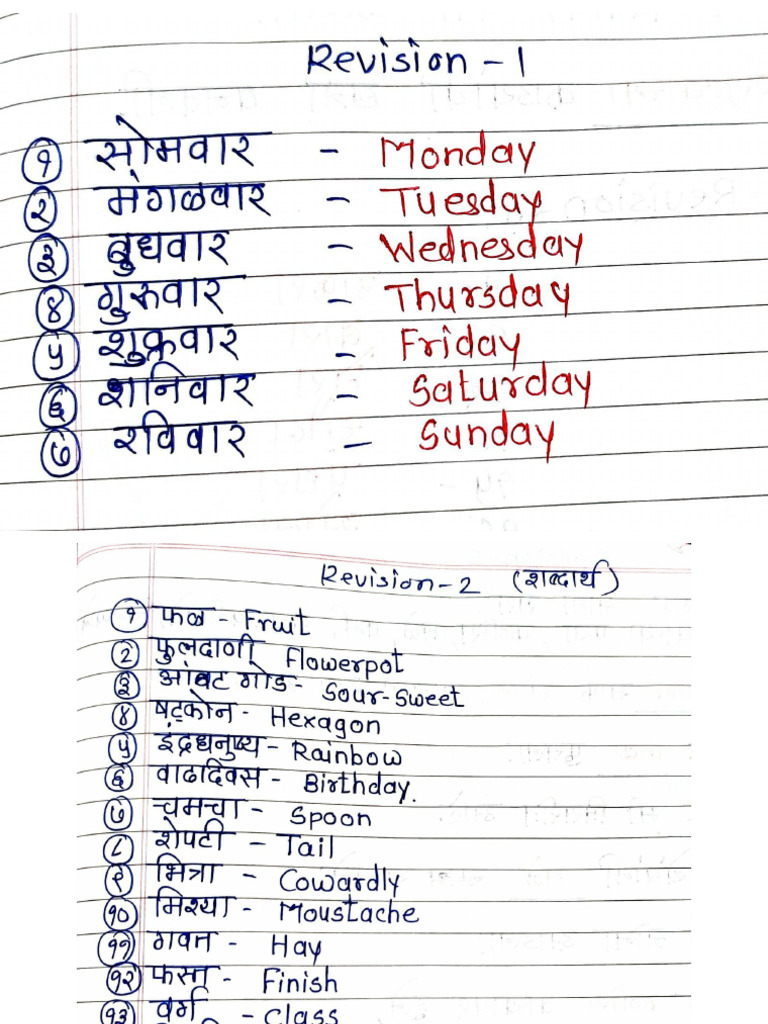 Revision - 1
१ सोमवार - Monday
२ मंगळवार - Tuesday
३ बुधवार - Wednesday
४ गुरुवार - Thursday
५ शुक्रवार - Friday
६ शनिवार - Saturday
७ रविवार - Sunday
Revision - 2 (शब्दार्थ)
१ फळ - Fruit
२ फुलदाणी Flowerpot
३ आंबट गोड - Sour-Sweet
४ षट्कोन - Hexagon
५ इंद्रधनुष्य - Rainbow
६ वाढदिवस - Birthday.
७ चमचा - Spoon
८ शेपटी - Tail
९ भित्रा - Cowardly
१० मिश्या - Moustache
११ गवत - Hay
१२ फस्त - Finish
१३ वर्ग - Class